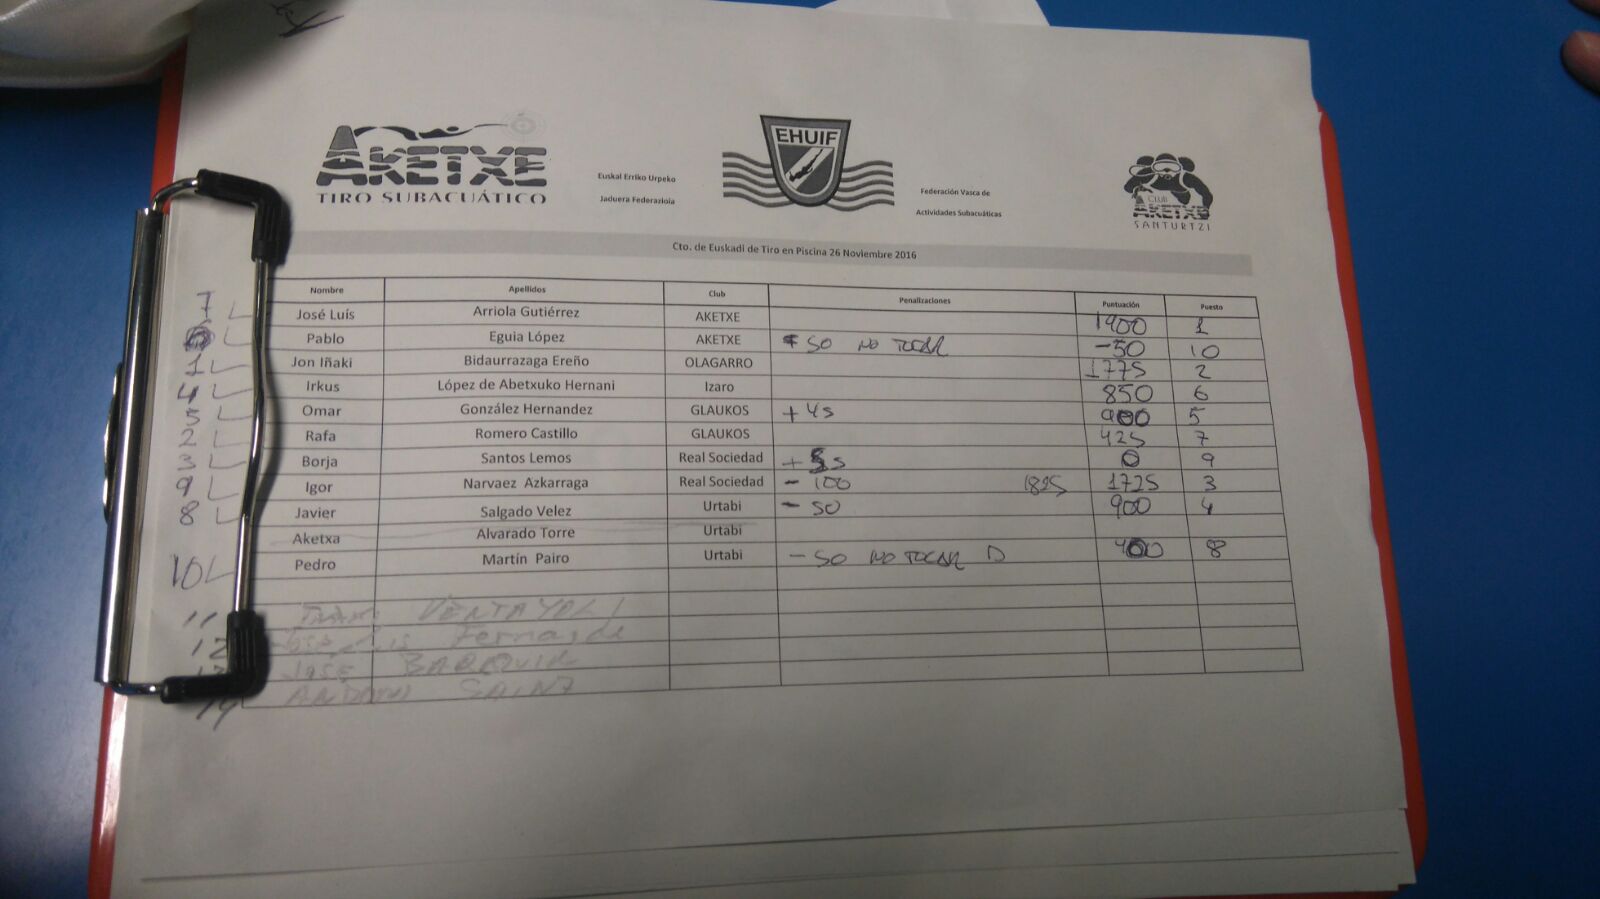 AKETXE
TIRO SUBACUÁTICO
Euskal Erriko Urpeko
Jaduera Federazioia
EHUIF
Federación Vasca de
Actividades Subacuáticas
CLUB
AKETXE
SANTURTZI
Cto. de Euskadi de Tiro en Piscina 26 Noviembre 2016
Nombre Apellidos Club Penalizaciones Puntuación Puesto
7 José Luís Arriola Gutiérrez AKETXE 1900 1
Pablo Eguia López AKETXE 50 NO TOCAR -50 10
1 Jon Iñaki Bidaurrazaga Ereño OLAGARRO 1775 2
4 Irkus López de Abetxuko Hernani Izaro 850 6
5 Omar González Hernandez GLAUKOS + 4s 900 5
2 Rafa Romero Castillo GLAUKOS 425 7
3 Borja Santos Lemos Real Sociedad 0 9
9 Igor Narvaez Azkarraga Real Sociedad - 100 1825 1725 3
8 Javier Salgado Velez Urtabi - 50 900 4
Aketxa Alvarado Torre Urtabi
10 Pedro Martín Pairo Urtabi - 50 NO TOCAR D 400 8
11 VENTAYOL
12
JOSE
14 SAINZ